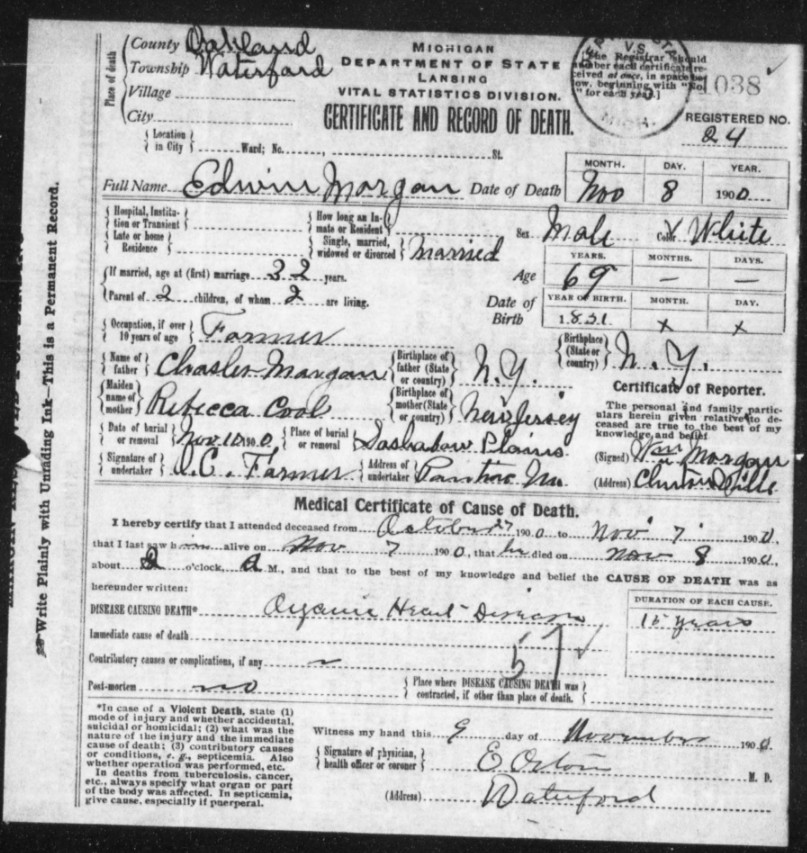 Place of death
County Oakland
Township Waterford
Village
City
MICHIGAN
DEPARTMENT OF STATE
LANSING
VITAL STATISTICS DIVISION.
CERTIFICATE AND RECORD OF DEATH.
V.S.
MICH.
[The Registrar should
number each certificate re-
ceived at once, in space be-
low, beginning with "No.
" for each year.]
1038
REGISTERED NO.
24
Location in City Ward; No. St.
Full Name Edwin Morgan Date of Death
MONTH. DAY. YEAR.
Nov 8 1900
Hospital, Institu-tion or Transient
Late or home Residence
How long an In-mate or Resident
Single, married, widowed or divorced Married
Sex Male Color White
If married, age at (first) marriage 32 years.
Age
YEARS. MONTHS. DAYS.
69 — —
Parent of 2 children, of whom 2 are living.
Date of Birth
YEAR OF BIRTH. MONTH. DAY.
1831 x x
Occupation, if over 10 years of age Farmer
Birthplace (State or country) N.Y.
Name of father Morgan
Birthplace of father (State or country) N.Y.
Maiden name of mother Rebecca Cool
Birthplace of mother (State or country) New Jersey
Date of burial or removal Nov 10 1900 Place of burial or removal Plains
Signature of undertaker C. Farmer Address of undertaker Pontiac
Certificate of Reporter.
The personal and family partic-
ulars herein given relative to de-
ceased are true to the best of my
knowledge and belief
(Signed) Wm Morgan
(Address)
Medical Certificate of Cause of Death.
I hereby certify that I attended deceased from October 27 1900 to Nov 7 1900,
that I last saw him alive on Nov 7 1900, that he died on Nov 8 1900,
about o'clock, A M., and that to the best of my knowledge and belief the CAUSE OF DEATH was as
hereunder written:
DURATION OF EACH CAUSE.
DISEASE CAUSING DEATH* Organic Heart Disease
15 years
Immediate cause of death
57
Contributory causes or complications, if any
Post-mortem no
Place where DISEASE CAUSING DEATH was contracted, if other than place of death.
*In case of a Violent Death, state (1)
mode of injury and whether accidental,
suicidal or homicidal; (2) what was the
nature of the injury and the immediate
cause of death; (3) contributory causes
or conditions, e. g., septicemia. Also
whether operation was performed, etc.
In deaths from tuberculosis, cancer,
etc., always specify what organ or part
of the body was affected. In septicemia,
give cause, especially if puerperal.
Witness my hand this 9 day of November 1900
Signature of physician, health officer or coroner E Orton M. D.
(Address) Waterford
Write Plainly with Unfading Ink—This is a Permanent Record.